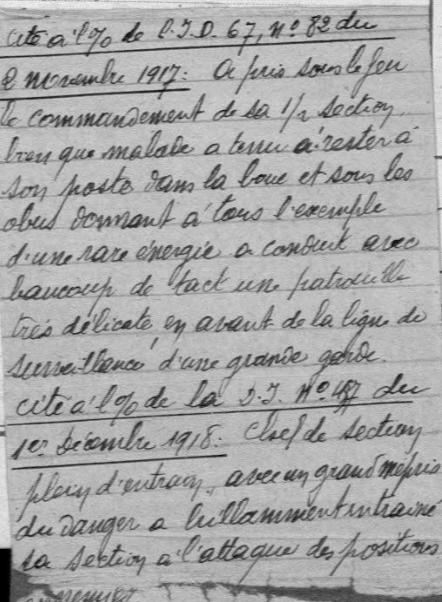 cité à l'% de l'I.D. 67, n° 82 du
2 novembre 1917: A pris sous le feu
le commandement de sa 1/2 section,
bien que malade a tenu à rester à
son poste dans la boue et sous les
obus donnant à tous l'exemple
d'une rare énergie a conduit avec
baucoup de tact une patrouille
très délicate en avant de la ligne de
surveillance d'une grande garde.
cité à l'% de la D.I. N° du
1er Décembre 1918: Chef de section
plein d'entrain, avec un grand mépris
du danger a brillamment entrainé
sa section à l'attaque des positions